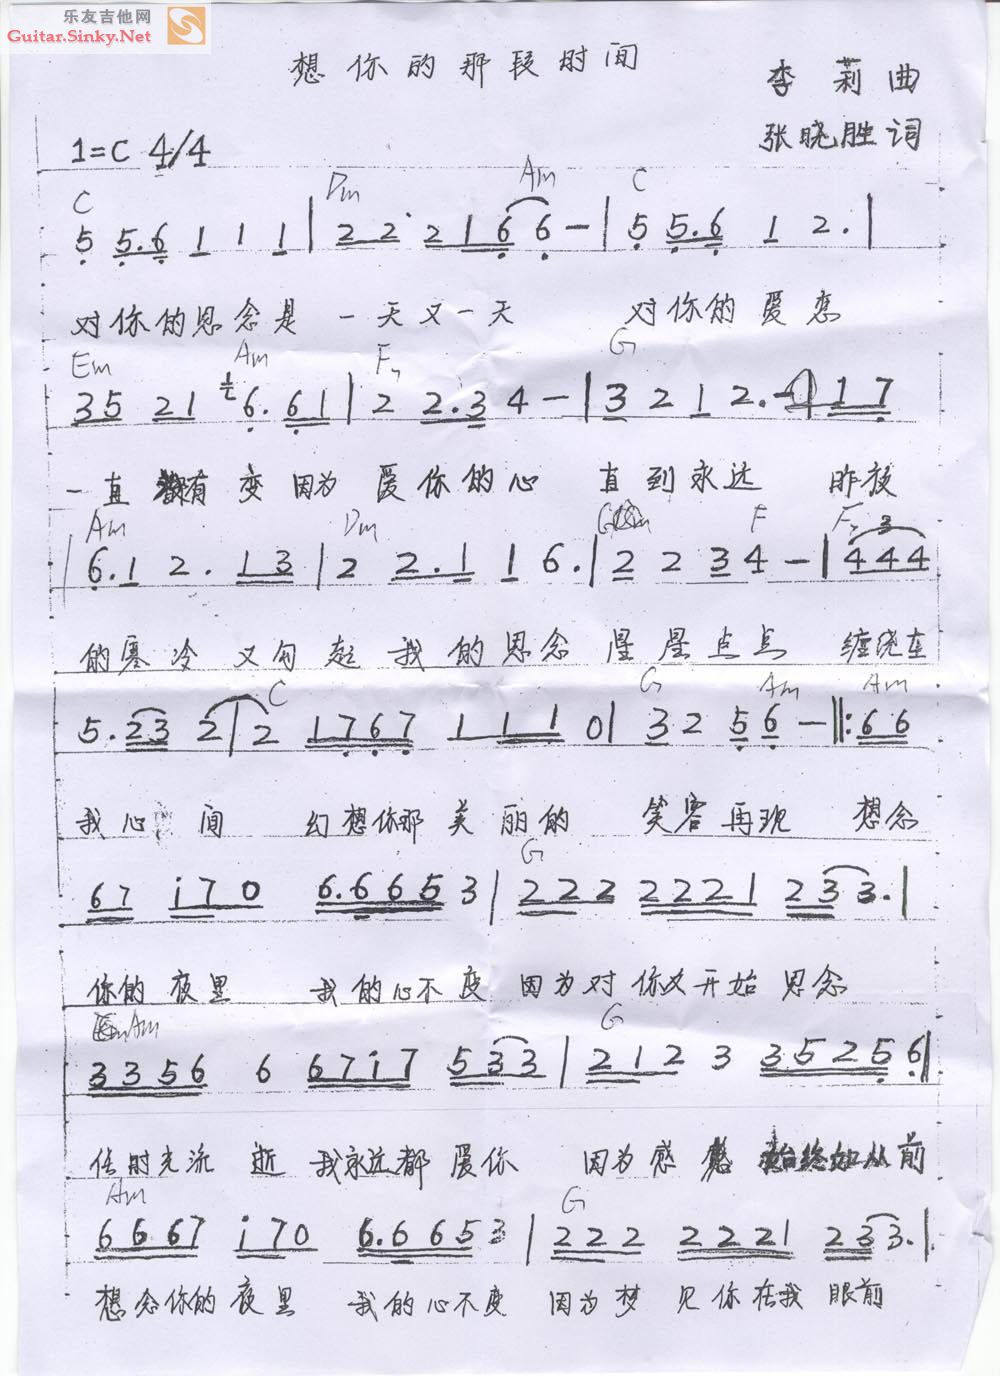 乐友吉他网
Guitar.Sinky.Net
想你的那段时间
李莉曲
张晓胜词
1=C 4/4
C Dm Am C
5 5.6 1 1 1 | 2 2 2 1 6 6 - | 5 5.6 1 2. |
对你的思念是 一天又一天 对你的爱恋
Em Am F G
3 5 2 1 6. 6 1 | 2 2.3 4 - | 3 2 1 2. - | 1 7
一直没有变 因为爱你的心 直到永远 昨夜
Am Dm F F
| 6.1 2. 1 3 | 2 2.1 1 6. | 2 2 3 4 - | 4 4 4
的寒冷 又勾起我的思念 星星点点 缠绕在
C G Am Am
5. 2 3 2 | 2 1 7 6 7 1 1 1 0 | 3 2 5 6 - ‖: 6 6
我心间 幻想你那美丽的 笑容再现 想念
G
6 7 i 7 0 6. 6 6 5 3 | 2 2 2 2 2 2 1 2 3 3. |
你的夜里 我的心不变 因为对你又开始思念
Am G
3 3 5 6 6 6 7 i 7 5 3 3 | 2 1 2 3 3 5 2 5 6 ‖
任时光流逝 我永远都爱你 因为感 始终如从前
Am G
6 6 6 7 i 7 0 6. 6 6 5 3 | 2 2 2 2 2 2 1 2 3 3. |
想念你的夜里 我的心不变 因为梦见你在我眼前